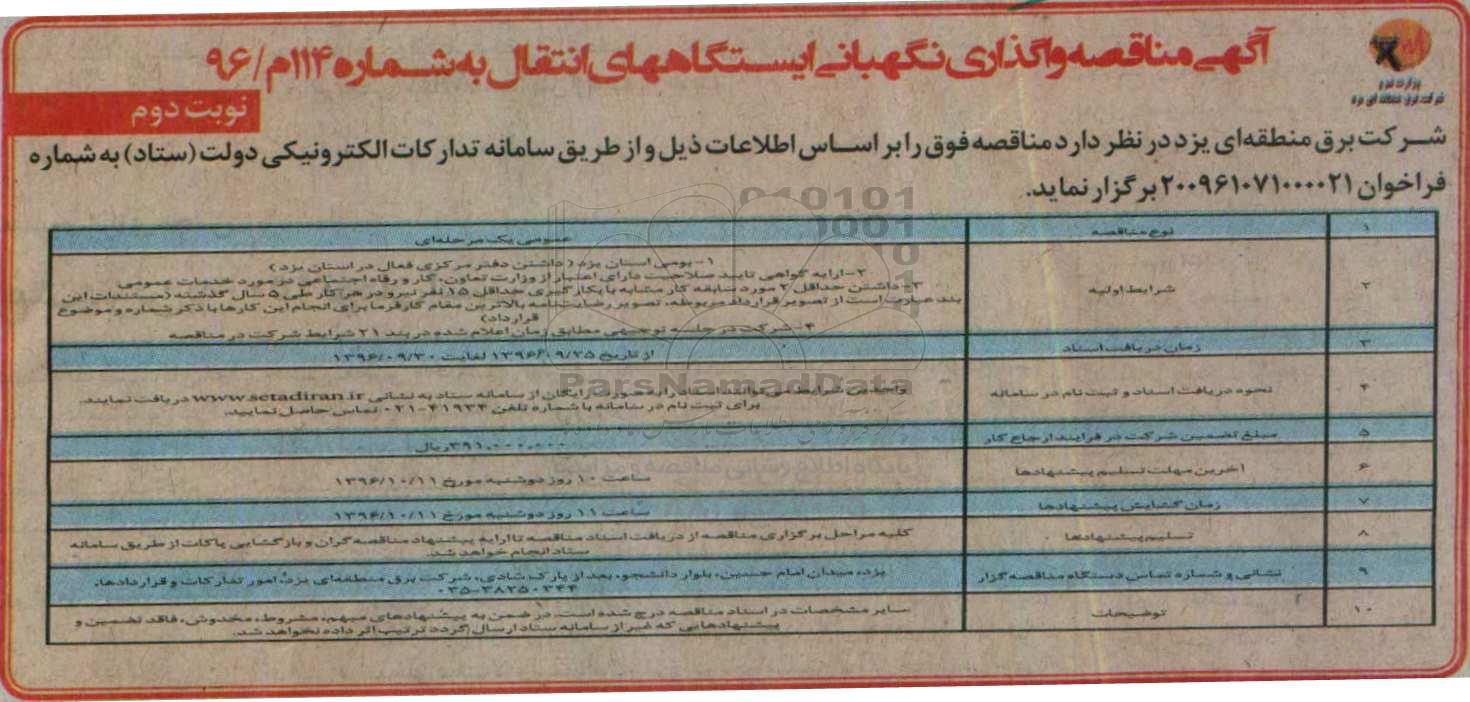 آگهی مناقصه واگذاری نگهبانی ایستگاههای انتقال به شماره ۱۱۴م/۹۶
وزارت نیرو
شرکت برق منطقه ای یزد
نوبت دوم
شرکت برق منطقه‌ای یزد در نظر دارد مناقصه فوق را بر اساس اطلاعات ذیل و از طریق سامانه تدارکات الکترونیکی دولت (ستاد) به شماره
فراخوان ۲۰۰۹۶۱۰۷۱۰۰۰۰۲۱ برگزار نماید.
۱ نوع مناقصه عمومی یک مرحله‌ای
۲ شرایط اولیه
۱- بومی استان یزد (داشتن دفتر مرکزی فعال در استان یزد)
۲- ارایه گواهی تایید صلاحیت دارای اعتبار از وزارت تعاون، کار و رفاه اجتماعی در مورد خدمات عمومی
۳- داشتن حداقل ۲ مورد سابقه کار مشابه با بکارگیری حداقل ۱۵ نفر نیرو در هر کار طی ۵ سال گذشته (مستندات این
بند عبارت است از تصویر قرارداد مربوطه، تصویر رضایت‌نامه بالاترین مقام کارفرما برای انجام این کارها با ذکر شماره و موضوع
قرارداد)
۴- شرکت در جلسه توجیهی مطابق زمان اعلام شده در بند ۲۱ شرایط شرکت در مناقصه
۳ زمان دریافت اسناد از تاریخ ۱۳۹۶/۰۹/۲۵ لغایت ۱۳۹۶/۰۹/۳۰
۴ نحوه دریافت اسناد و ثبت نام در سامانه
واجدین شرایط می‌توانند اسناد را به صورت رایگان از سامانه ستاد به نشانی www.setadiran.ir دریافت نمایند.
برای ثبت نام در سامانه با شماره تلفن ۴۱۹۳۴-۰۲۱ تماس حاصل نمایید.
۵ مبلغ تضمین شرکت در فرایند ارجاع کار ۳۹۱.۰۰۰.۰۰۰ ریال
۶ آخرین مهلت تسلیم پیشنهادها ساعت ۱۰ روز دوشنبه مورخ ۱۳۹۶/۱۰/۱۱
۷ زمان گشایش پیشنهادها ساعت ۱۱ روز دوشنبه مورخ ۱۳۹۶/۱۰/۱۱
۸ تسلیم پیشنهادها
کلیه مراحل برگزاری مناقصه از دریافت اسناد مناقصه تا ارایه پیشنهاد مناقصه‌گران و بازگشایی پاکات از طریق سامانه
ستاد انجام خواهد شد.
۹ نشانی و شماره تماس دستگاه مناقصه گزار
یزد، میدان امام حسین، بلوار دانشجو، بعد از پارک شادی، شرکت برق منطقه‌ای یزد، امور تدارکات و قراردادها.
۰۳۵-۳۸۲۵۰۳۴۴
۱۰ توضیحات
سایر مشخصات در اسناد مناقصه درج شده است. در ضمن به پیشنهادهای مبهم، مشروط، مخدوش، فاقد تضمین و
پیشنهادهایی که غیر از سامانه ستاد ارسال گردد ترتیب اثر داده نخواهد شد.
ParsNamadData
پایگاه اطلاع رسانی مناقصه و مزایده